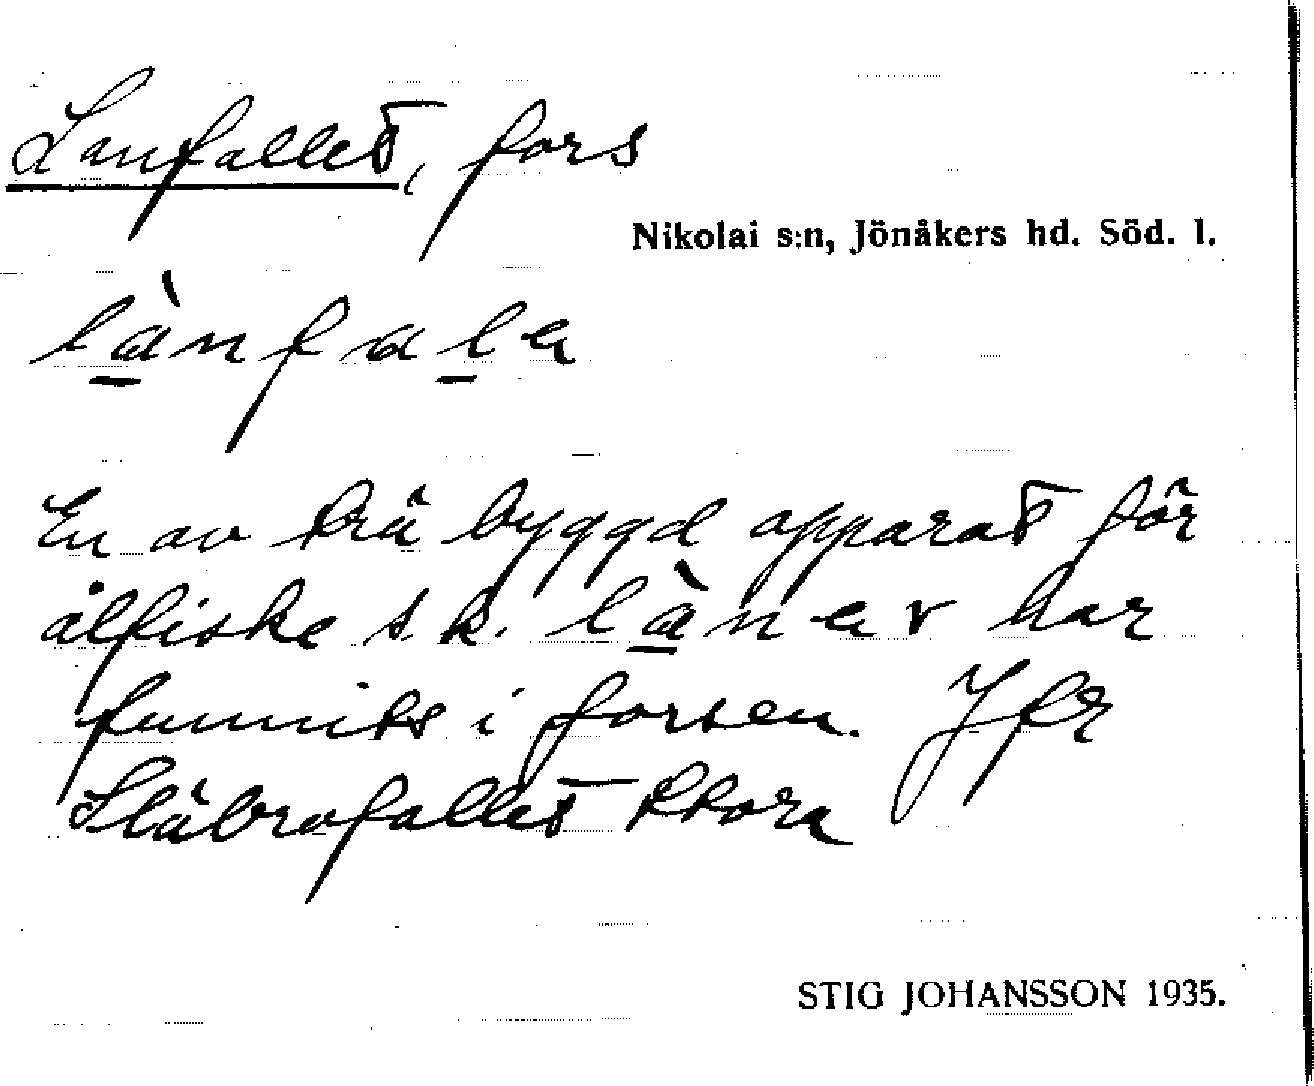 Lanfallet, fors
Nikolai s:n, Jönåkers hd. Söd. l.
lànfala
En av trä byggd apparat för
ålfiske s.k. lànar har
funnits i forsen. Jfr
Släbrofallet Stora
STIG JOHANSSON 1935.